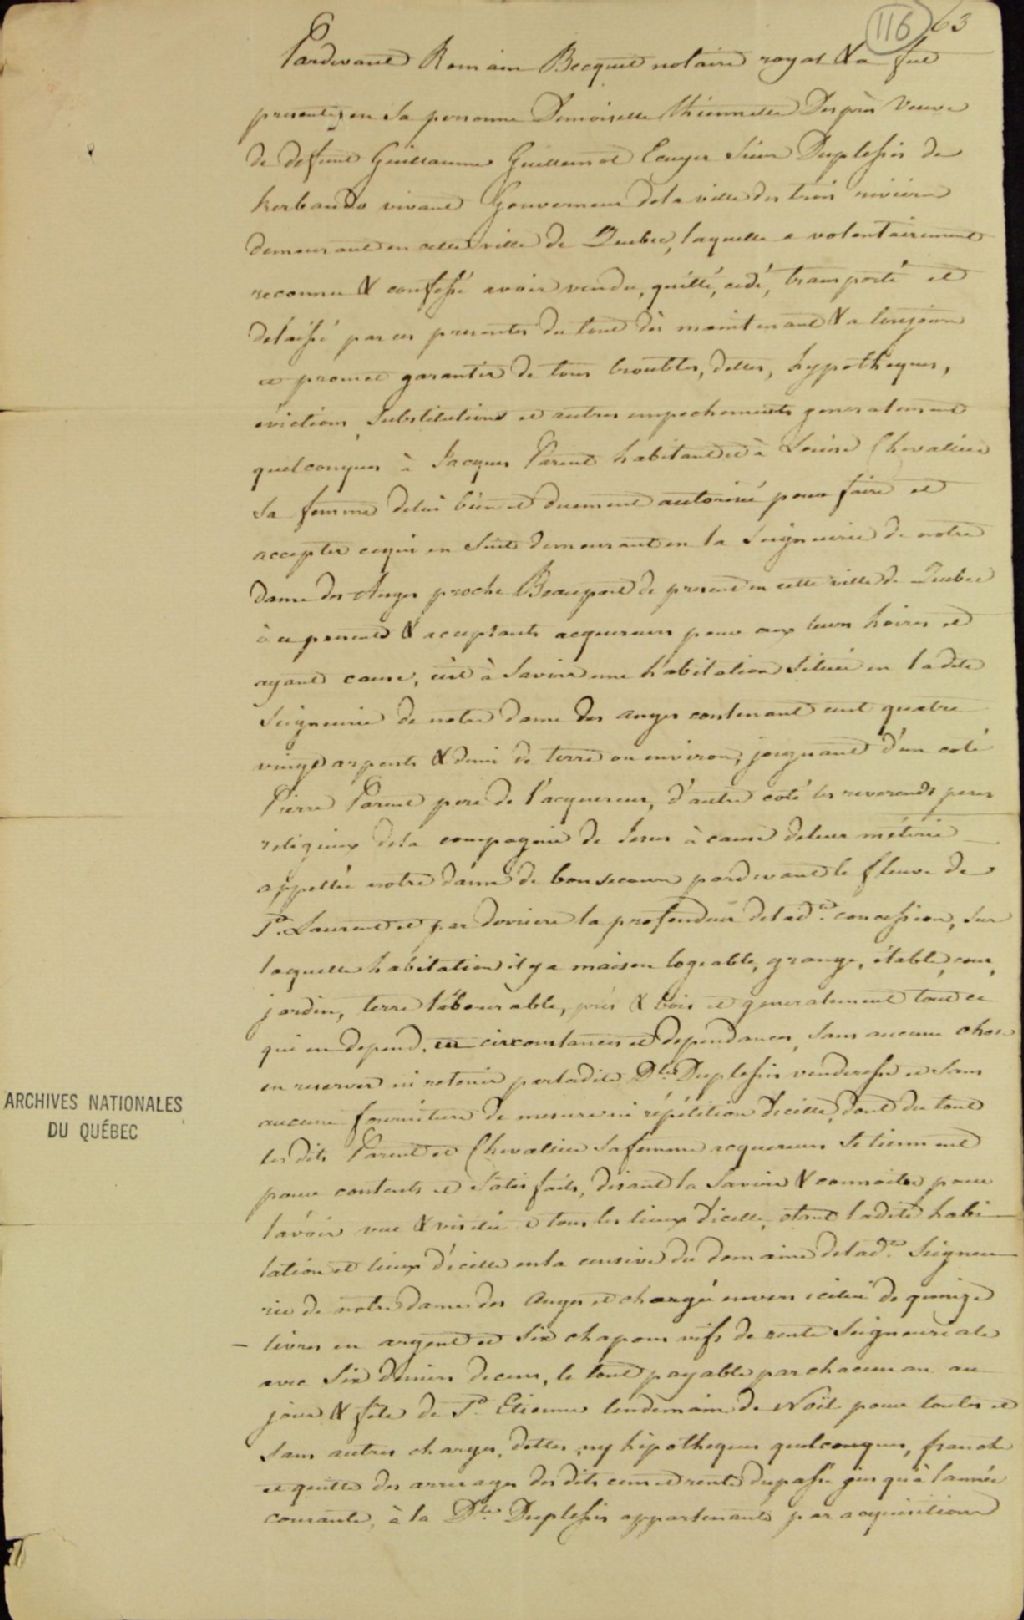 116 63
Pardevant Romain Becquet notaire royal & a fut
presente en sa personne Demoiselle Thiennette Desprès Veuve
de defunt Guillaume Guillemot Ecuyer Sieur Duplessis de
Kerbaudo vivant Gouverneur dela ville des trois rivieres
demeurant en cette ville de Quebec, laquelle a volontairement
reconnu & confessé avoir vendu, quitté, cedé, transporté et
delaissé par ces presentes du tout dès maintenant & a toujours
et promet garantir de tous troubles, dettes, hypotheques,
evictions, substitutions et autres empechements generalement
quelconques à Jacques Parent habitant et à Louise Chevalier
sa femme delui bien et duement autorisée pour faire et
accepter cequi en suit demeurant en la Seigneurie de notre
dame des Anges proche Beauport de present en cette ville de Quebec
à ce present & acceptants acquereurs pour eux leurs hoires et
ayant cause, cest à Savoir une habitation Située en ladite
Seigneurie de notre dame des anges contenant cent quatre
vingt arpents & demi de terre ou environ, joignant d'un coté
Pierre Parent pere de l'acquereur, d'autre coté les reverends peres
religieux dela compagnie de Jesus à cause deleur métairie
appellée notre dame de bonsecours pardevant le fleuve de
St. Laurent et par derriere la profondeur delade. concession, sur
laquelle habitation il y a maison logeable, grange, étable, cour,
jardin, terre labourable, prés & bois et generalement tout ce
qui en depend, en circonstances et dependances, sans aucune chose
en reserver ni retenir parladite Dlle Duplessis venderesse et sans
aucune fourniture de mesure ni répétition d'icelle, dont du tout
lesdits Parent et Chevalier sa femme acquereurs se tiennent
pour contents et satisfaits, disant la Savoir & connoitre pour
l'avoir vue & visitée et tous les lieux d'icelle, etant ladite habi-
tation et lieux d'icelle en la censive du domaine delade. Seigneu-
rie de notre dame des Anges et chargé envers icelui de quinze
livres en argent et six chapons vifs de rente Seigneuriale
avec Six deniers de cens, le tout payable par chacun an au
jour & fête de St. Etienne lendemain de Noël pour toutes et
sans autres charges, dettes ny hipotheques quelconques, franche
et quitte des arrerages desdits cens et rente dupassé jusqu'à l'année
courante, à la Dlle Duplessis appartenant par acquisition
ARCHIVES NATIONALES
DU QUÉBEC